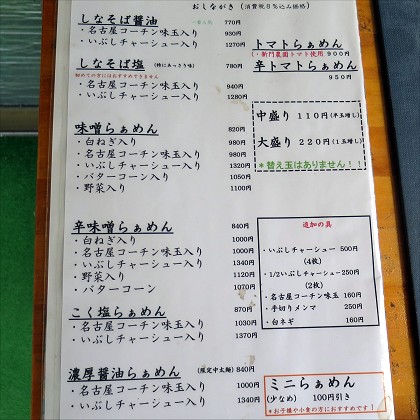 おしながき（消費税8％込み価格）
しなそば醤油 一番人気 770円
・名古屋コーチン味玉入り 930円
・いぶしチャーシュー入り 1270円
しなそば塩（特にあっさり味） 780円
初めての方にはおすすめできません
・名古屋コーチン味玉入り 940円
・いぶしチャーシュー入り 1280円
味噌らぁめん 820円
・白ねぎ入り 980円
・名古屋コーチン味玉入り 980円
・いぶしチャーシュー入り 1320円
・バターコーン入り 1050円
・野菜入り 1100円
辛味噌らぁめん 840円
・白ねぎ入り 1000円
・名古屋コーチン味玉入り 1000円
・いぶしチャーシュー入り 1340円
・野菜入り 1120円
・バターコーン 1070円
こく塩らぁめん 870円
・名古屋コーチン味玉入り 1030円
・いぶしチャーシュー入り 1370円
濃厚醤油らぁめん（限定中太麺） 840円
・名古屋コーチン味玉入り 1000円
・いぶしチャーシュー入り 1340円
トマトらぁめん
農園トマト使用 900円
辛トマトらぁめん
950円
中盛り 110円（半玉増し）
大盛り 220円（1玉増し）
＊替え玉はありません！！
追加の具
・いぶしチャーシュー 500円
（4枚）
・1/2いぶしチャーシュー250円
（2枚）
・名古屋コーチン味玉 160円
・手切りメンマ 250円
・白ネギ 160円
ミニらぁめん
（少なめ） 100円引き
＊お子様や小食の方におすすめです！